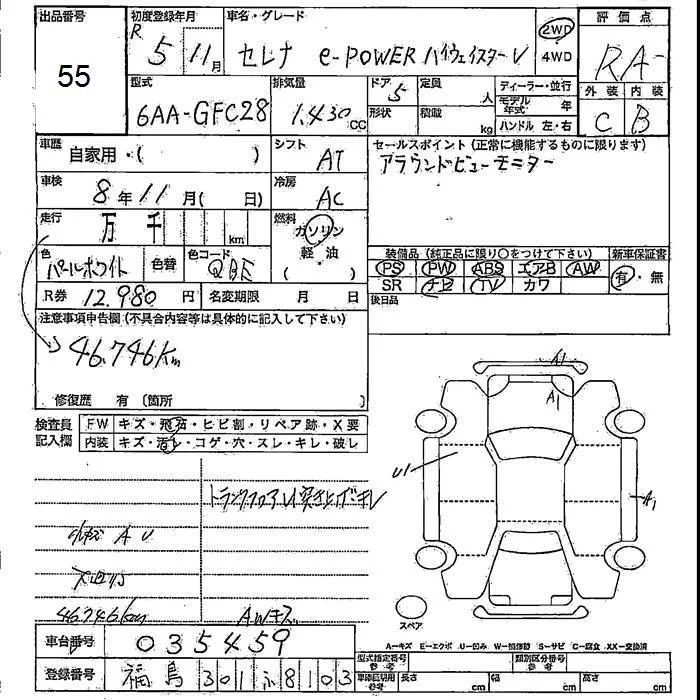 出品番号 初度登録年月 車名・グレード 評価点
55 R 5 11月 セレナ e-POWER ハイウェイスターV 2WD 4WD RA-
型式 排気量 ドア 定員 ディーラー・並行 外装 内装
6AA-GFC28 1.430 CC 5 人 モデル年式 年 C B
形状 積載 kg ハンドル 左・右
車歴 シフト セールスポイント (正常に機能するものに限ります)
自家用・( ) AT アラウンドビューモニター
車検 冷房
8年11月( 日) AC
走行 燃料
万 千 km ガソリン
色 色コード 軽・油 装備品 (純正品に限り○をつけて下さい) 新車保証書
パールホワイト 色替 QBE ( ) PS PW ABS エアB AW 有・無
SR ナビ TV カワ
R券 12.980 円 名変期限 月 日 後日品
注意事項申告欄(不具合内容等は具体的に記入して下さい)
46.746km
修復歴 有 (箇所 )
A1
A1
検査員 FW キズ・飛石・ヒビ割・リペア跡・X要
記入欄 内装 キズ・汚レ・コゲ・穴・スレ・キレ・破レ
U1
A1
トランクフロアU突き上げキレ
小キズ A U
46.746km AWキズ
スペア
車台番号 035459
A-キズ E-エクボ U-凹み W-補修跡 S-サビ C-腐食 XX-交換済
登録番号 福島 301 8103
型式指定番号 参考 類別区分番号 参考
車庫証明用 参考 長さ cm 幅 cm 高さ cm